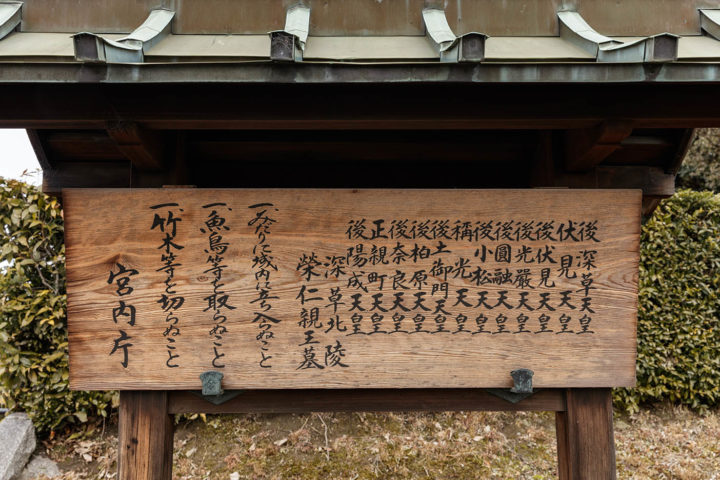 後深草天皇
伏見天皇
後伏見天皇
後光厳天皇
後圓融天皇
後小松天皇
稱光天皇
後土御門天皇
後柏原天皇
後奈良天皇
正親町天皇
後陽成天皇
深草北陵
榮仁親王墓
一、みだりに域内に立入らぬこと
一、魚鳥等を取らぬこと
一、竹木等を切らぬこと
宮内庁